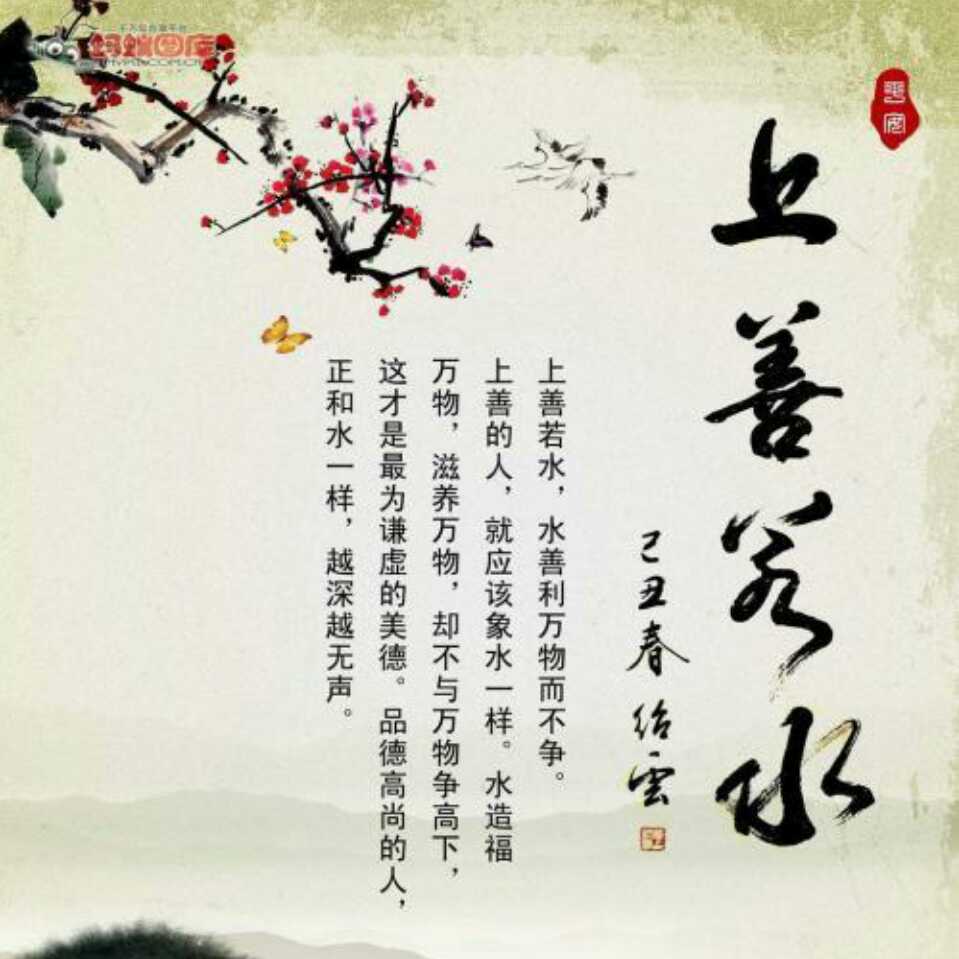 上善若水
己丑春绍雲
上善若水，水善利万物而不争。
上善的人，就应该象水一样。水造福
万物，滋养万物，却不与万物争高下，
这才是最为谦虚的美德。品德高尚的人，
正和水一样，越深越无声。
蚂蚁图库